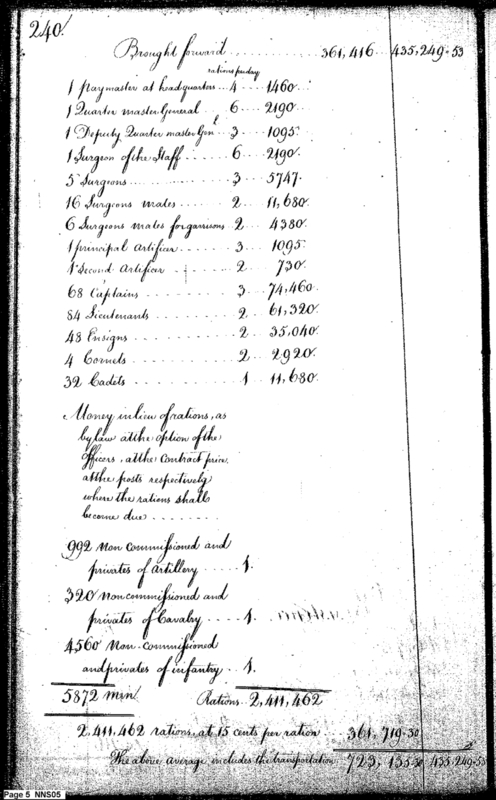 240.
Brought forward .......... 361,416 .. 435,249.53
rations per day
1 paymaster at headquarters .. 4 .. 1460.
1 Quarter master General .. 6 .. 2190.
1 Deputy Quarter master Genl .. 3 .. 1095.
1 Surgeon of the Staff .. 6 .. 2190.
5 Surgeons .......... 3 .. 5747.
16 Surgeons mates .. 2 .. 11,680.
6 Surgeons mates for garrisons .. 2 .. 4380.
1 principal Artificer .. 3 .. 1095.
1 Second Artificer .. 2 .. 730.
68 Captains .......... 3 .. 74,460.
84 Lieutenants .......... 2 .. 61,320.
48 Ensigns .......... 2 .. 35,040.
4 Cornets .......... 2 .. 2920.
32 Cadets .......... 1 .. 11,680.
Money in lieu of rations, as
by law at the option of the
Officers, at the contract price,
at the posts respectively
when the rations shall
become due ........
992 Non commissioned and
privates of Artillery .... 1.
320 Non commissioned and
privates of Cavalry .... 1.
4560 Non-commissioned
and privates of infantry .. 1.
5872 Men Rations 2,411,462
2,411,462 rations, at 15 cents per ration 361,719.30
The above average includes the transportation 723,135.30 435,249.53
Page 5 NNS05